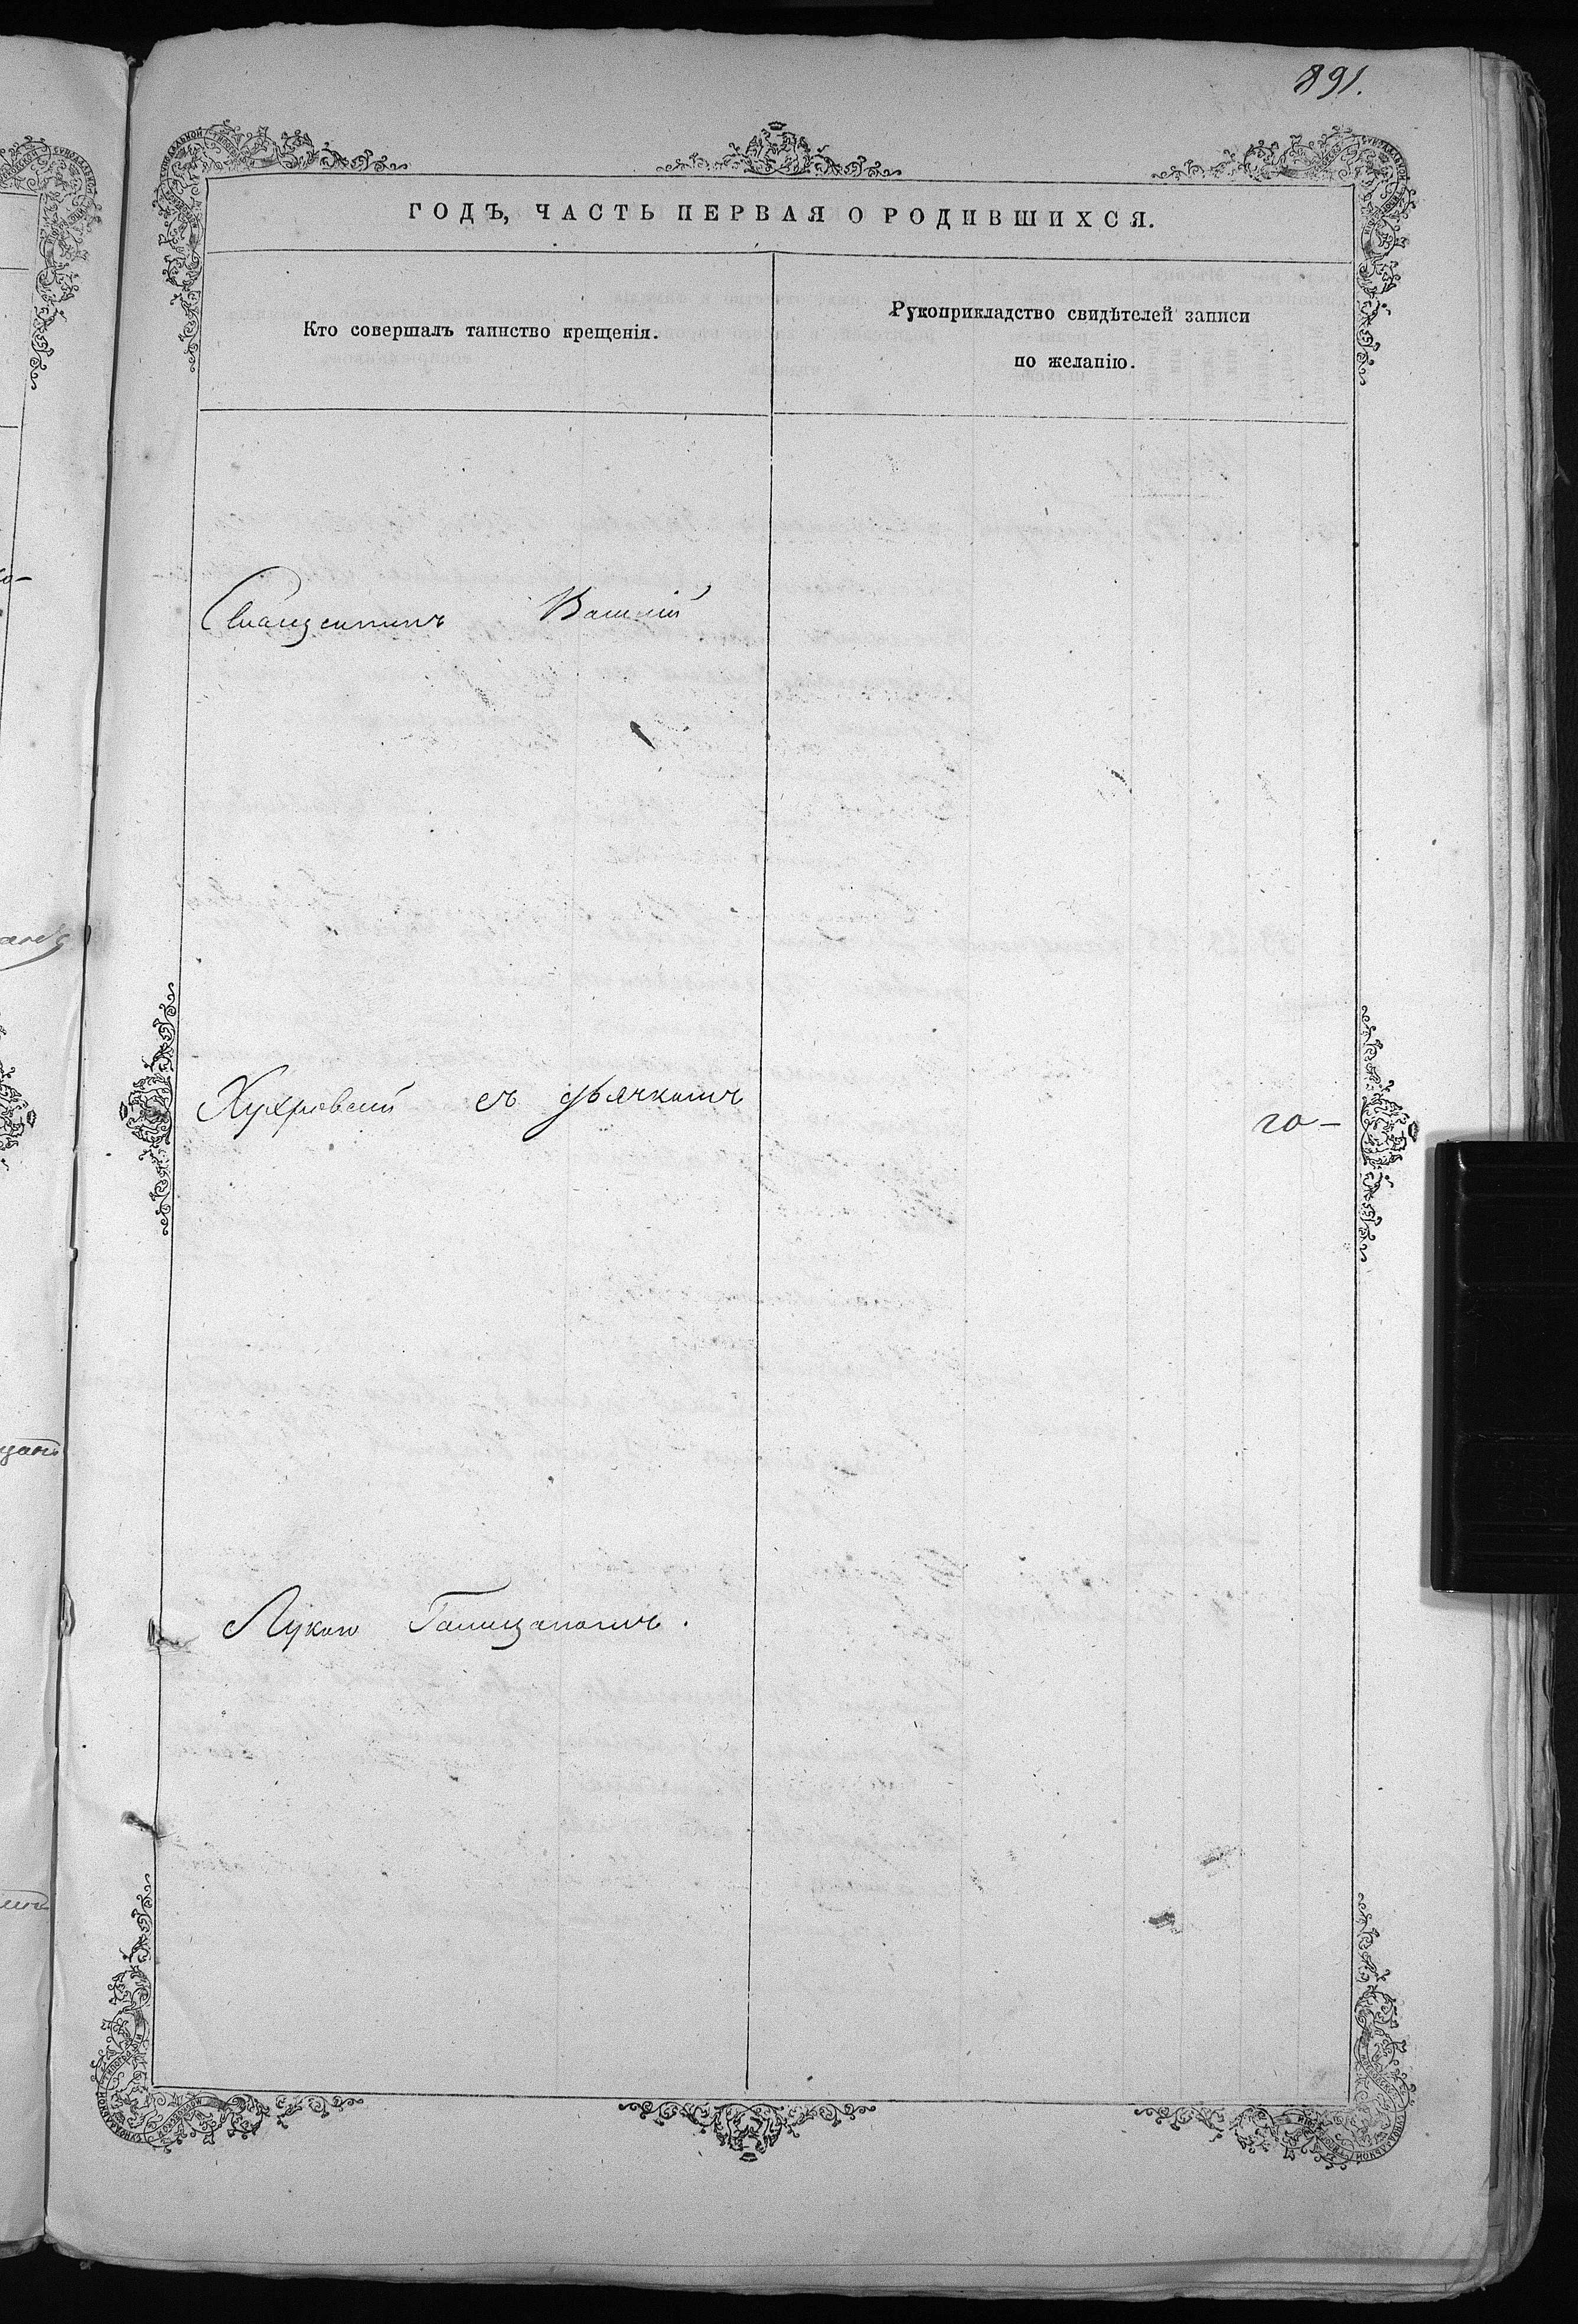 891.
ГОДЪ, ЧАСТЬ ПЕРВАЯ О РОДИВШИХСЯ.
Кто совершалъ таинство крещенія.
Рукоприкладство свидѣтелей записи
по желанію.
Священникъ Василій
съ дьячкомъ
го-
Лукою